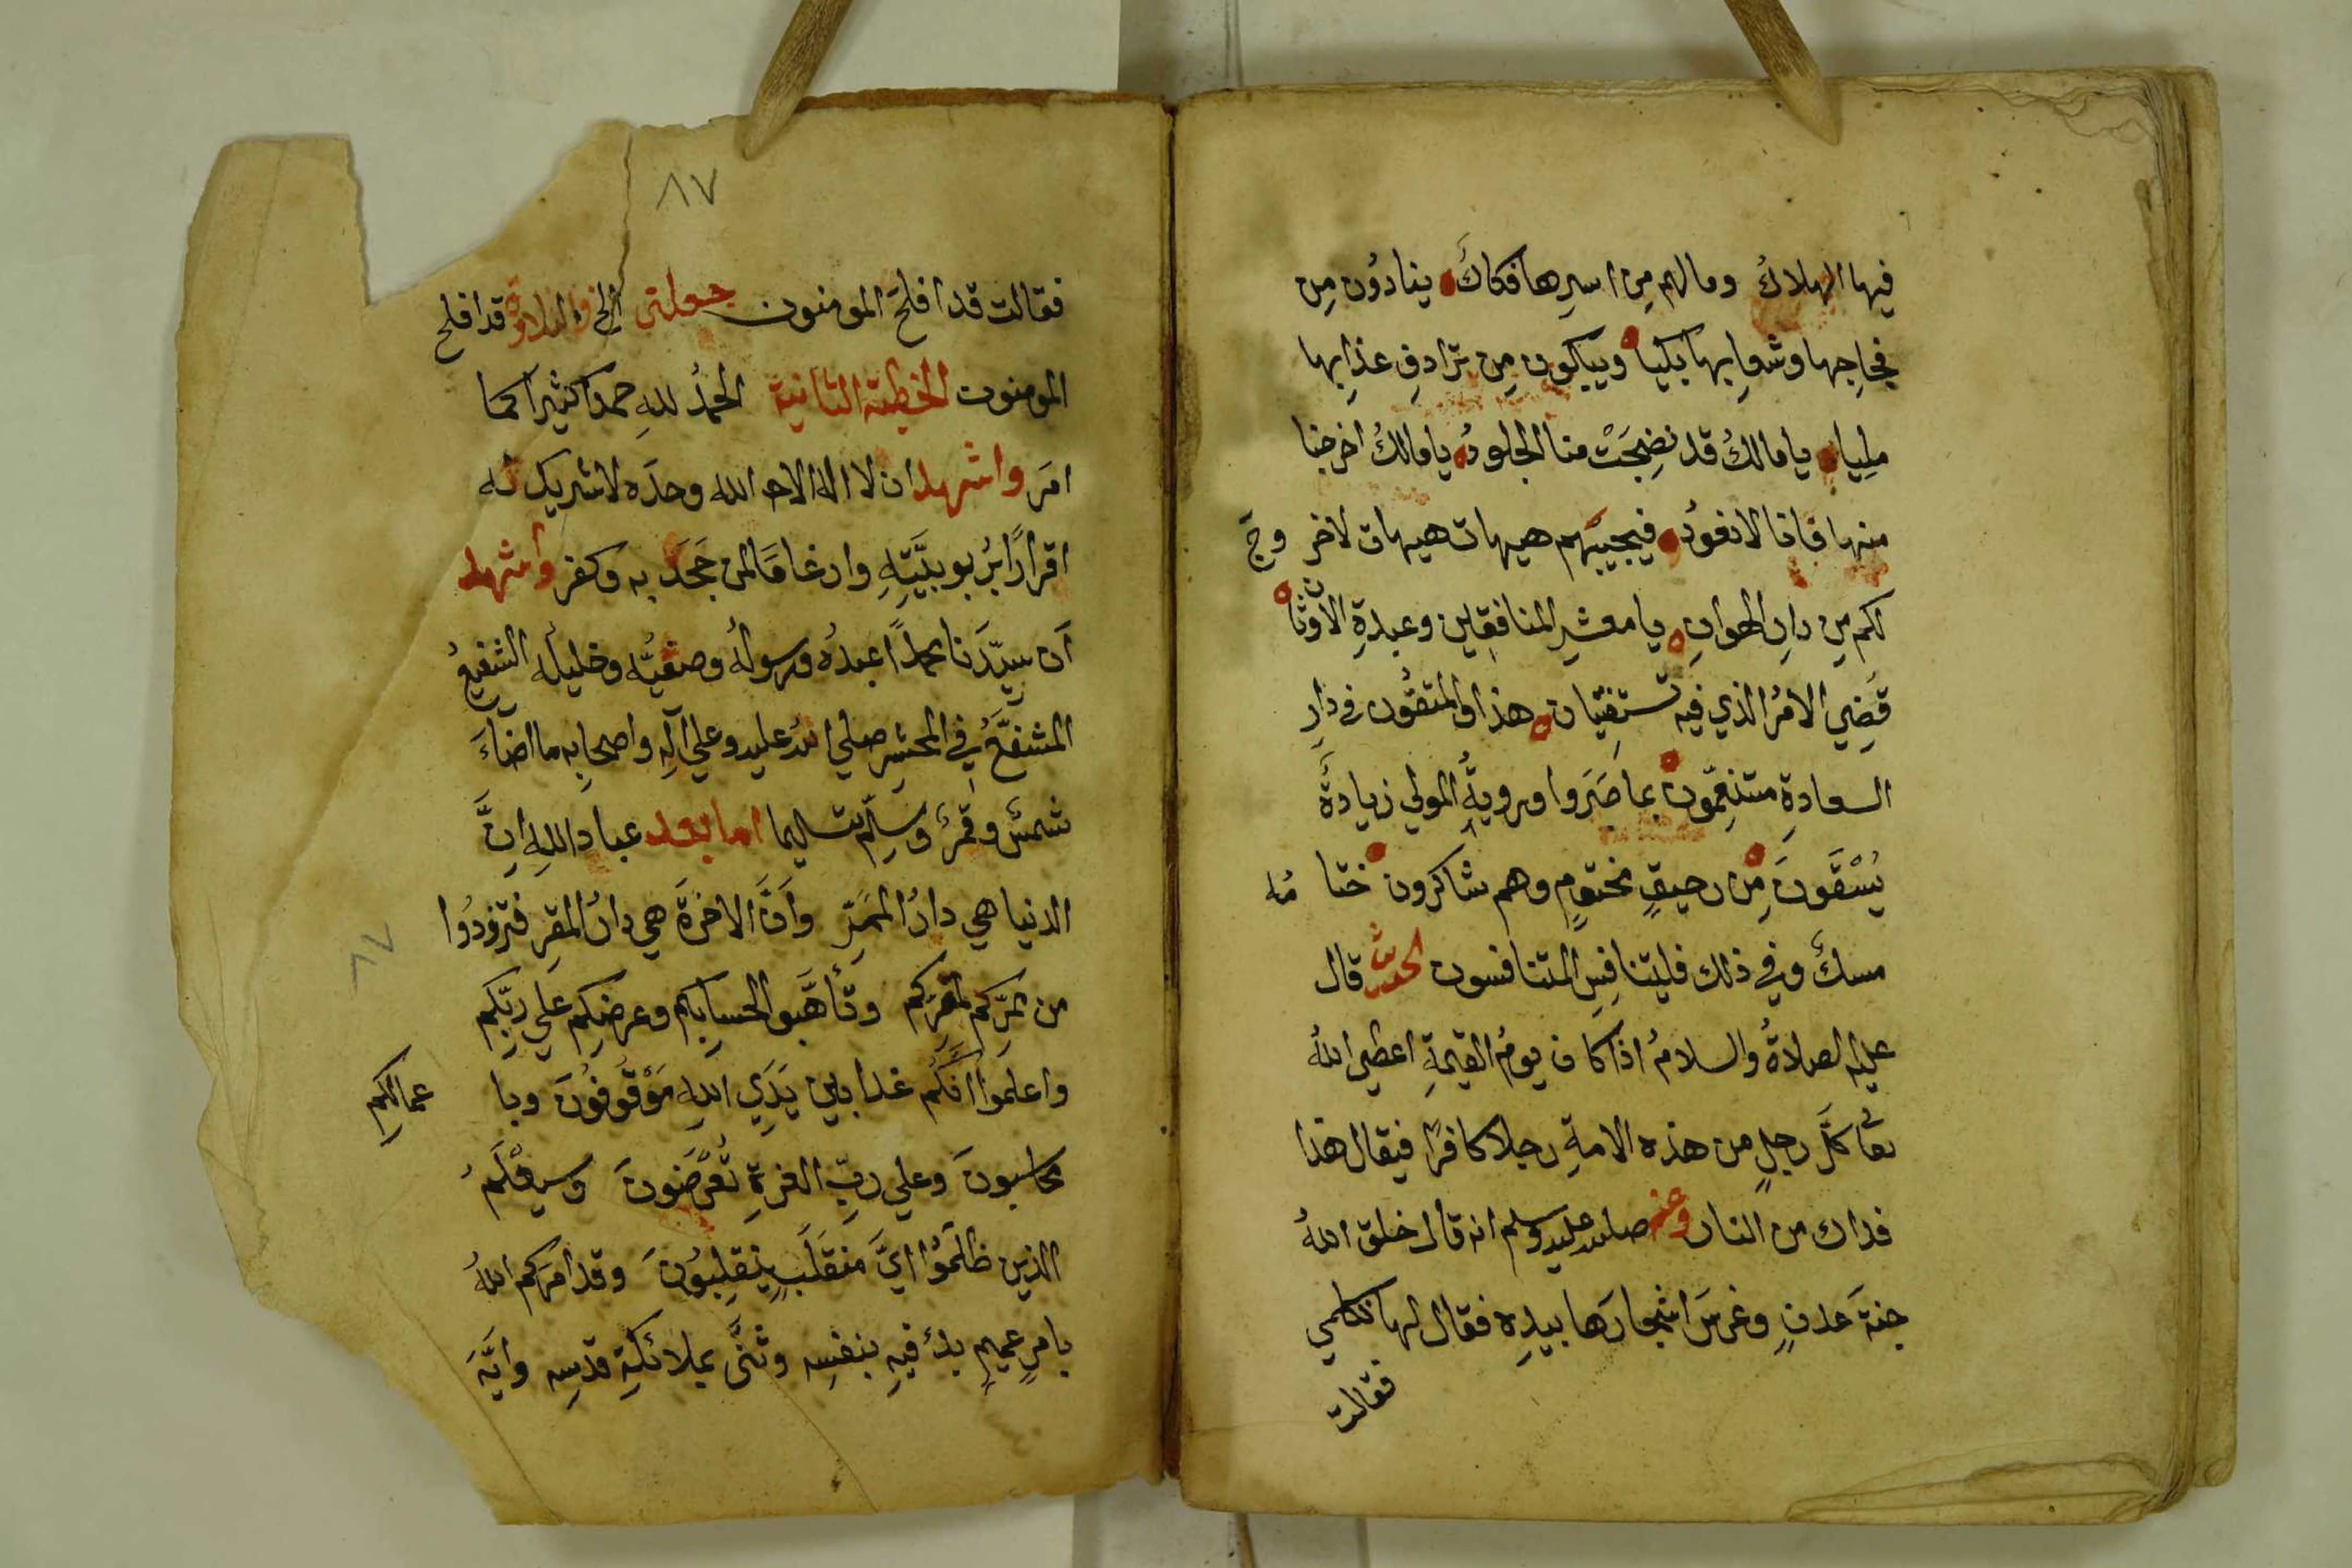 فيها الهلاكُ وما لهم مِن اسرِها فكاكَ ينادوُن مِن
فجاجها وشعابِها بكيا ويبكون مِن ترادفِ عذابِها
مليا يا مالكُ قد نضِجَتْ منا الجلودُ يا مالكُ اخرجنا
منها فانا لا نعودُ فيجيبُهم هيهات هيهات لا خروجَ
لكم مِن دارِ الهوانِ يا معشرَ المنافقِين وعبدةِ الأوثان
قضِي الامرُ الذي فيه تستفتيان هذا والمتقُون في دارِ
السعادةِ متنعِّمون بما صَبَروا ورويةُ المولي زيادةٌ
يُسْقَونَ مِن رحيقٍ مختومٍ وهم شاكرون ختامُه
مسكٌ وفي ذلك فليتنافسِ المتنافسون الحديث قال
عليه الصلاةُ والسلامُ اذا كان يومُ القيمةِ اعطي اللهُ
تعا كلَّ رجلٍ من هذه الامةِ رجلا كافرًا فيقال هذا
فداك من النار وعنه صلى الله عليه وسلم انه قال خلق اللهُ
جنةَ عدنٍ وغرسَ اشجارَها بيدِه فقال لها تكلمي
فقالت
٨٧
فقالت قد افلحَ المومنون جعلني الخ والتلاوة قد افلح
المومنون الخطبة الثانية الحمدُ للهِ حمدا كثيرا كما
امَر واشهد ان لا اله الا الله وحدَه لا شريك له
اقرارًا برُبوبيَّتِهِ وارغامًا لمن جَحَدَ به وكفر واشهد
اَن سيِّدَنا محمداً عبدُه ورسولُه وصفيُّه وخليلُه الشفيعُ
المشفَّعُ في المحشرِ صلي اللهُ عليه وعلي آلِه واصحابِه ما اضاءَ
شمسٌ وقمرٌ وسلِّم تسليما اما بعد عبادَ اللهِ اِنَّ
الدنيا هي دارُ الممَرِّ وأنَّ الاخرةَ هي دارُ المقرِ فتزودُوا
٨٧
من ممرِّكم لمقرِكم وتأهَّبوا لحسابِكم وعرضِكم علي ربِّكم
واعلموا انَّكُم غدا بين يَدَيِ اللهِ مَوْقُوفُونَ وباعمالكم
محاسبونَ وعلي ربِّ العزةِ تُعْرَضُونَ وسيعْلَمُ
الذين ظلَمُوا ايَّ منقَلَبٍ ينقلِبُونَ وقد امَركم اللهُ
بامرٍ عميمٍ بدأ فيهِ بنفسِه وثنَّى بملائكةِ قدسِه وايَّهَ